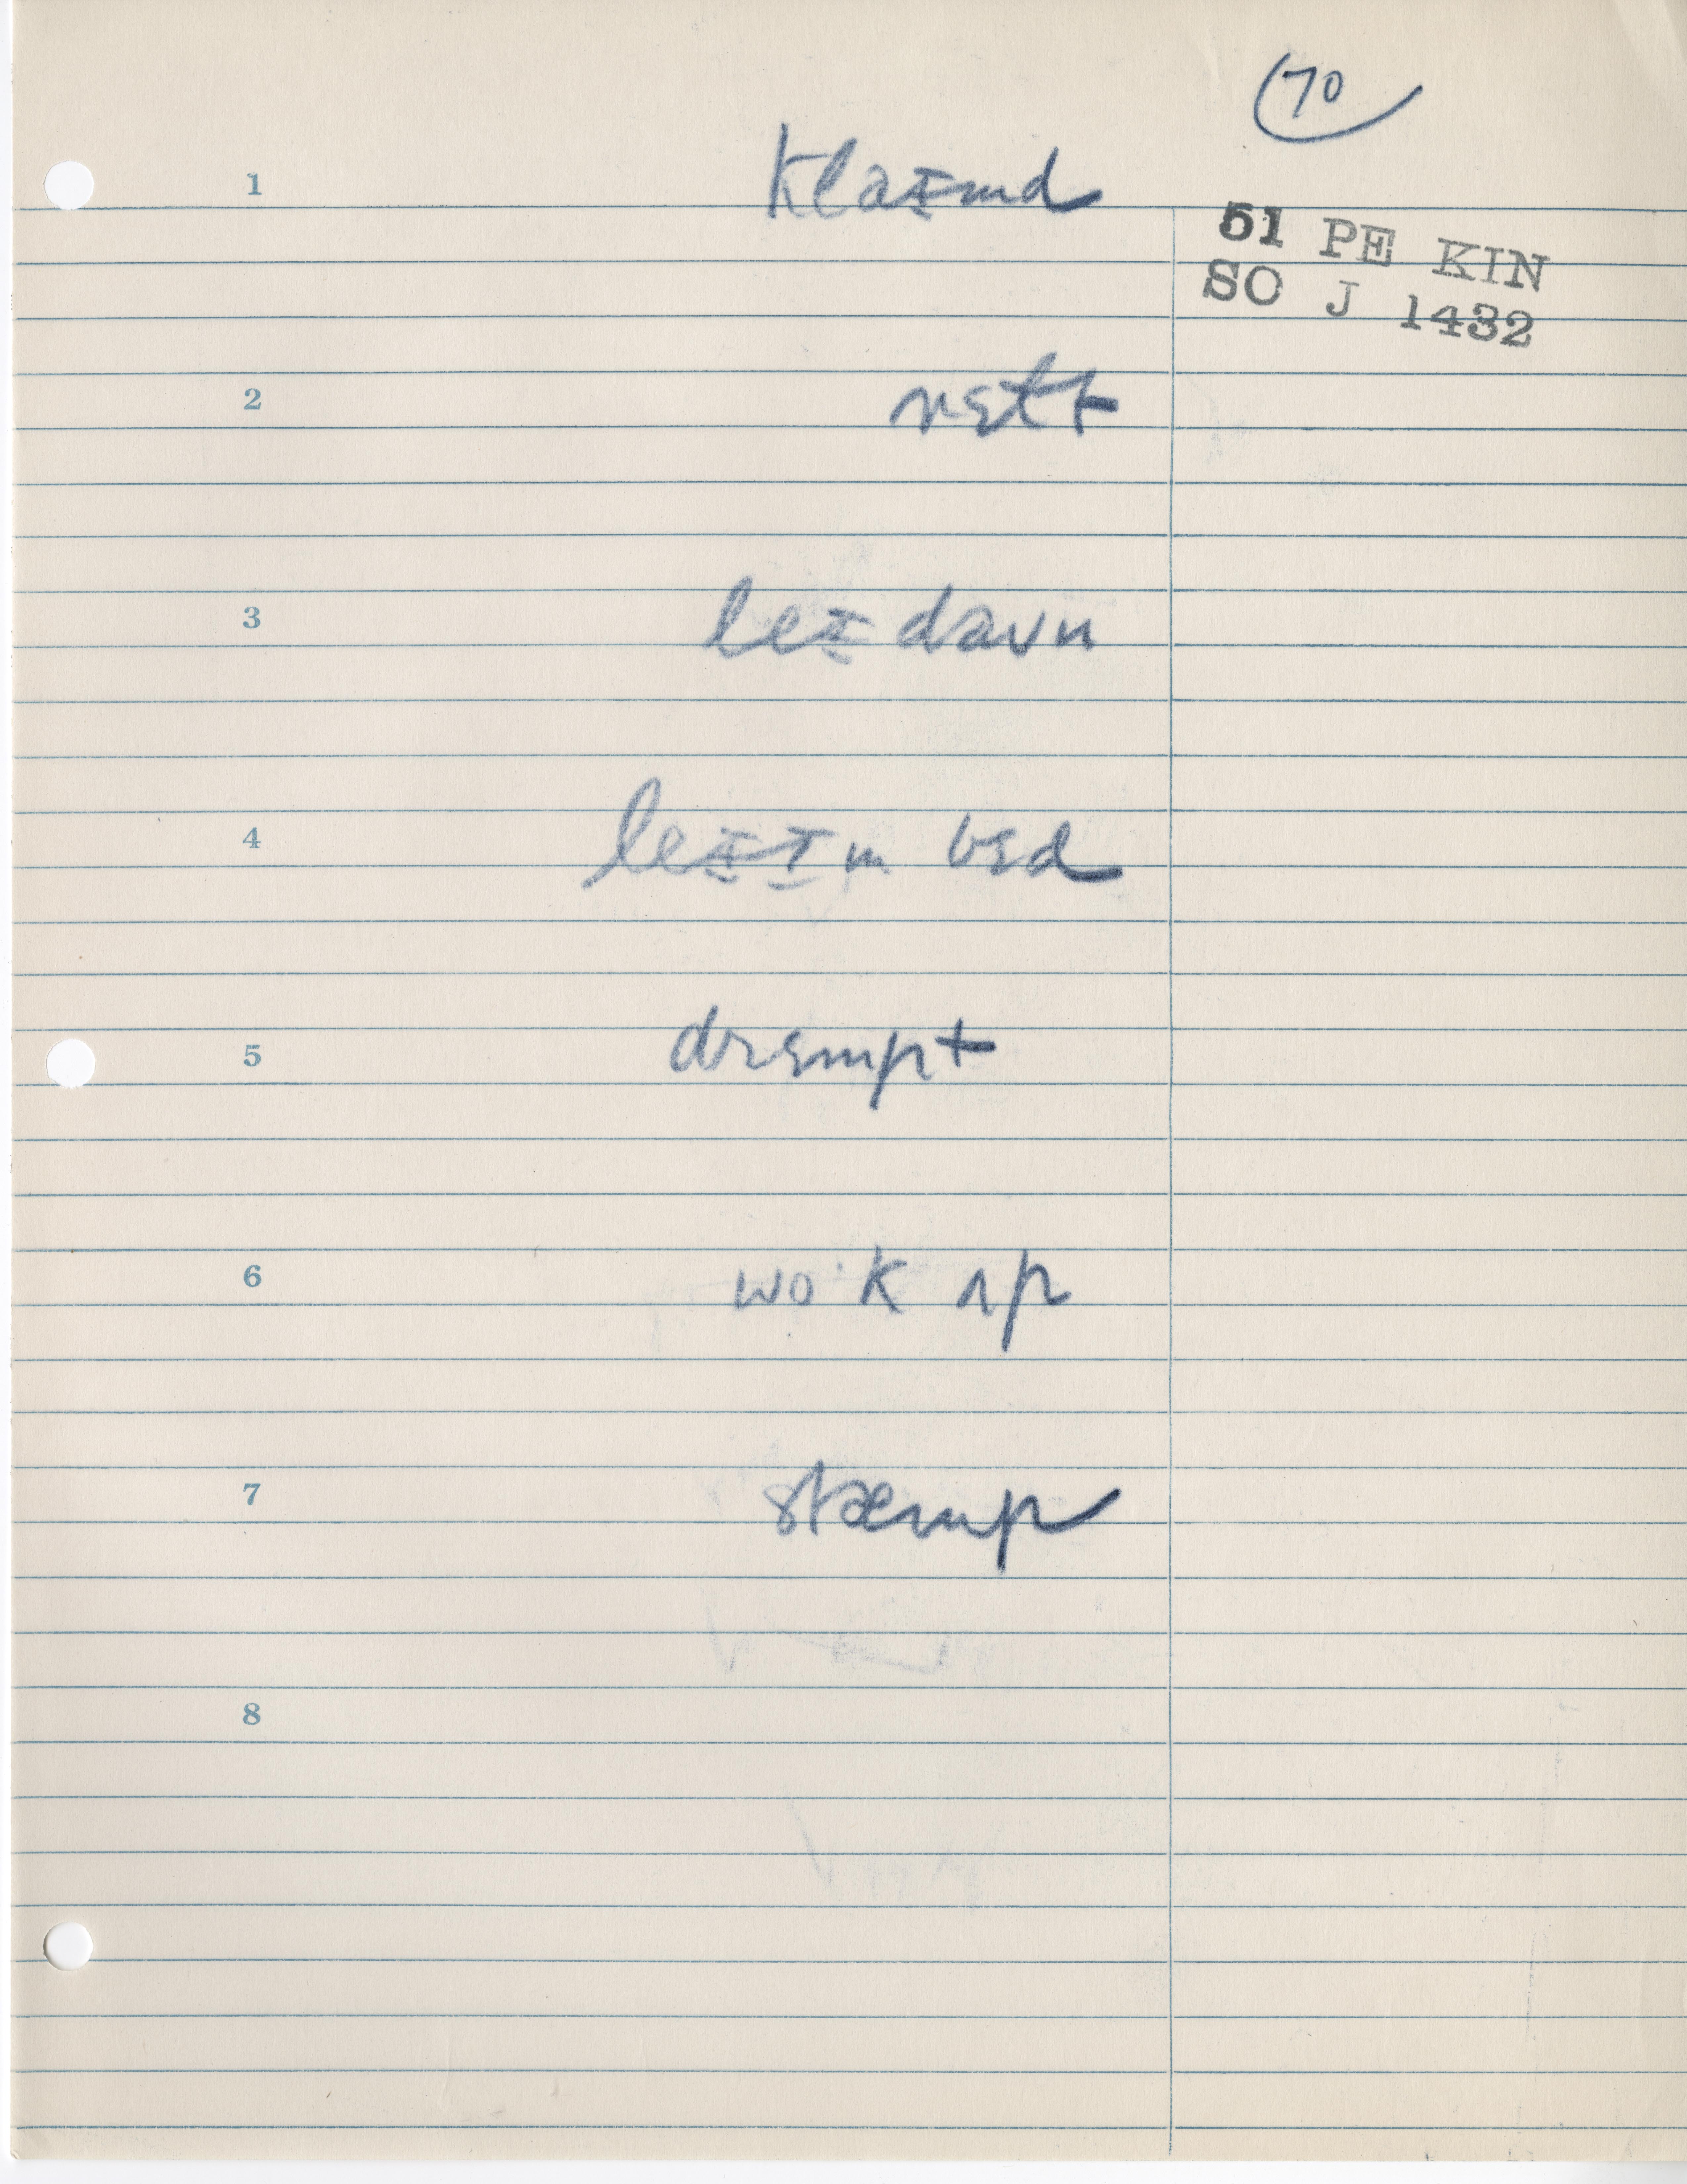 70
1 klaɪmd
51 PE KIN
SO J 1432
2 rɛtt
3 leɪ daʊn
4 leɪ ɪn bɛd
5 drɛmpt
6 wo·k ʌp
7 stæmp
8